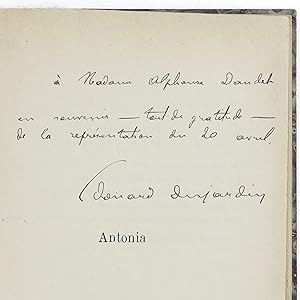 à Madame Alphonse Daudet
en souvenir — tout de gratitude —
de la représentation du 20 avril.
Edouard Dujardin
Antonia